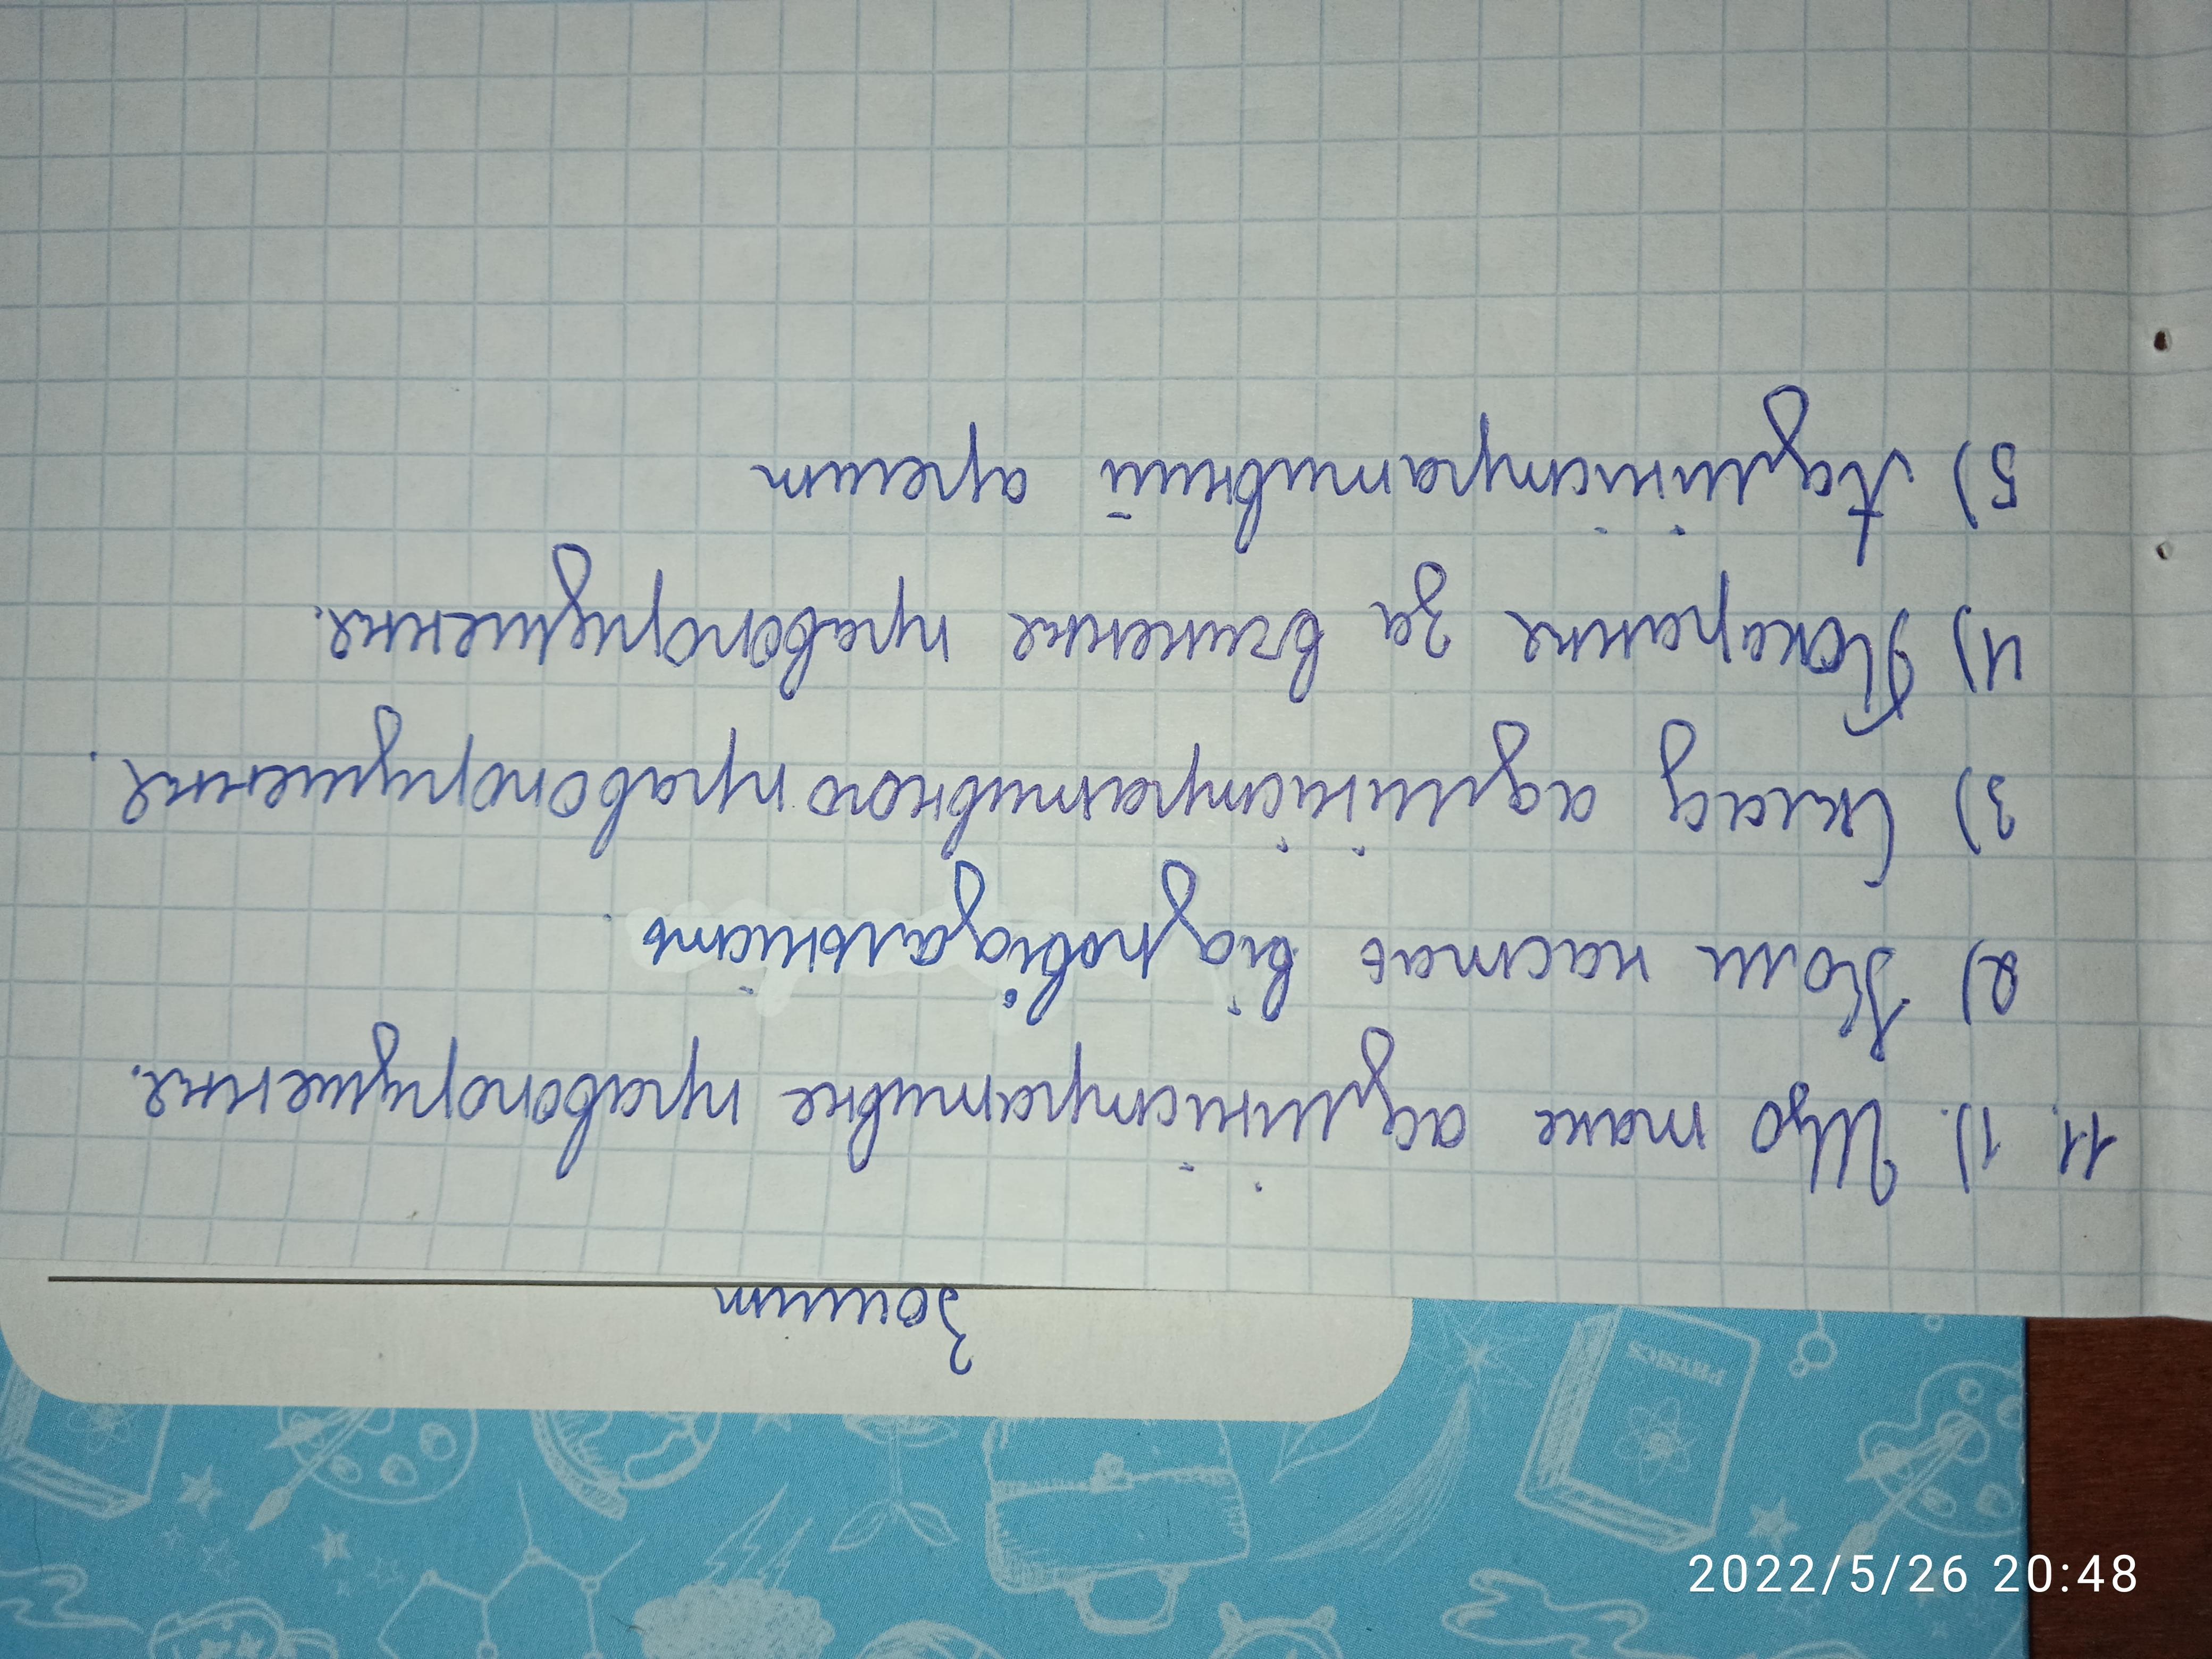 Зошит
11. 1). Що таке адміністративне правопорушення.
2) Коли настає відповідальність.
3) Склад адміністративного правопорушення.
4) Покарання за вчинення правопорушення.
5) Адміністративний арешт
PHYSICS
2022/5/26 20:48